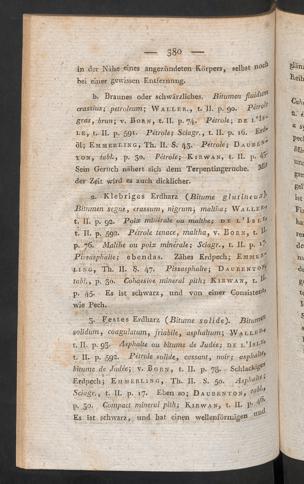 — 380 —
in der Nähe eines angezündeten Körpers, selbst noch
bei einer gewissen Entfernung.
b. Braunes oder schwärzliches. Bitumen fluidum
crassius; petroleum; WALLER., t. II. p. 90. Pétrole
gras, brun; v. BORN, t. II. p. 74. Pétrole; DE L'IS-
LE, t. II. p. 591. Pétrole; Sciagr., t. II. p. 16. Erd-
öl; EMMERLING, Th. II. S. 43. Pétrole; DAUBEN-
TON, tabl., p. 30. Pétrole; KIRWAN, t. II. p. 45.
Sein Geruch nähert sich dem Terpentingeruche. Mit
der Zeit wird es auch dicklicher.
2. Klebriges Erdharz (Bitume glutineux).
Bitumen segne, crassum, nigrum; maltha; WALLER.,
t. II. p. 92. Poix minérale ou malthe; DE L'ISLE,
t. II. p. 592. Pétrole tenace, maltha, v. BORN, t. II.
p. 76. Malthe ou poix minérale; Sciagr., t. II. p. 17.
Pissasphalte; ebendas. Zähes Erdpech; EMMER-
LING, Th. II. S. 47. Pissasphalte; DAUBENTON,
tabl., p. 30. Cohaesive mineral pith; KIRWAN, t. II.
p. 45. Es ist schwarz, und von einer Consistenz
wie Pech.
3. Festes Erdharz (Bitume solide). Bitumen
solidum, coagulatum, friabile, asphaltum; WALLER.,
t. II. p. 93. Asphalte ou bitume de Judée; DE L'ISLE,
t. II. p. 592. Pétrole solide, cassant, noir; asphalte,
bitume de Judée; v. BORN, t. II. p. 78. Schlackiges
Erdpech; EMMERLING, Th. II. S. 50. Asphalte;
Sciagr., t. II. p. 17. Eben so; DAUBENTON, tabl.,
p. 30. Compact mineral pith; KIRWAN, t. II. p. 46.
Es ist schwarz, und hat einen wellenförmigen und